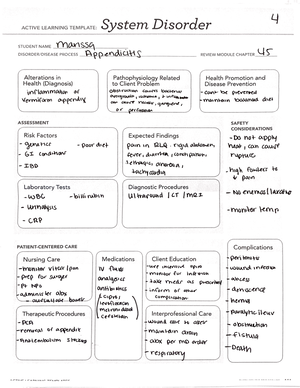 4
ACTIVE LEARNING TEMPLATE: System Disorder
STUDENT NAME Marissa
DISORDER/DISEASE PROCESS Appendicitis REVIEW MODULE CHAPTER 45
Alterations in
Health (Diagnosis)
inflammation of
vermiform appendix
Pathophysiology Related
to Client Problem
obstruction
or perforation
Health Promotion and
Disease Prevention
- cant be prevented
- maintain balanced diet
ASSESSMENT
SAFETY
CONSIDERATIONS
Risk Factors
- genetics - poor diet
- GI condition
- IBD
Expected Findings
pain in RLQ, rigid abdomen,
fever, diarrhea, constipation,
lethargic, anorexia,
tachycardia
- Do not apply
heat, can cause
rupture
- high fowlers to
↓ pain
- No enemas/laxative
- monitor temp
Laboratory Tests
- WBC - bilirubin
- Urinalysis
- CRP
Diagnostic Procedures
Ultrasound / CT / MRI
PATIENT-CENTERED CARE
Complications
- peritonitis
- wound infection
- abcess
- dehiscence
- hernia
- paralytic ileus
- obstruction
- fistula
- Death
Nursing Care
- monitor vitals / pain
- prep for surgery
- Pt NPO
- administer abx
Medications
IV fluids
analgesics
antibiotics
metronidazole
Client Education
- use incentive spiro
- monitor for infection
- take meds as prescribed
- inform of
complications
Therapeutic Procedures
- PCA
- removal of appendix
Interprofessional Care
wound care to
- maintain drain
- abx per MD order
- respiratory